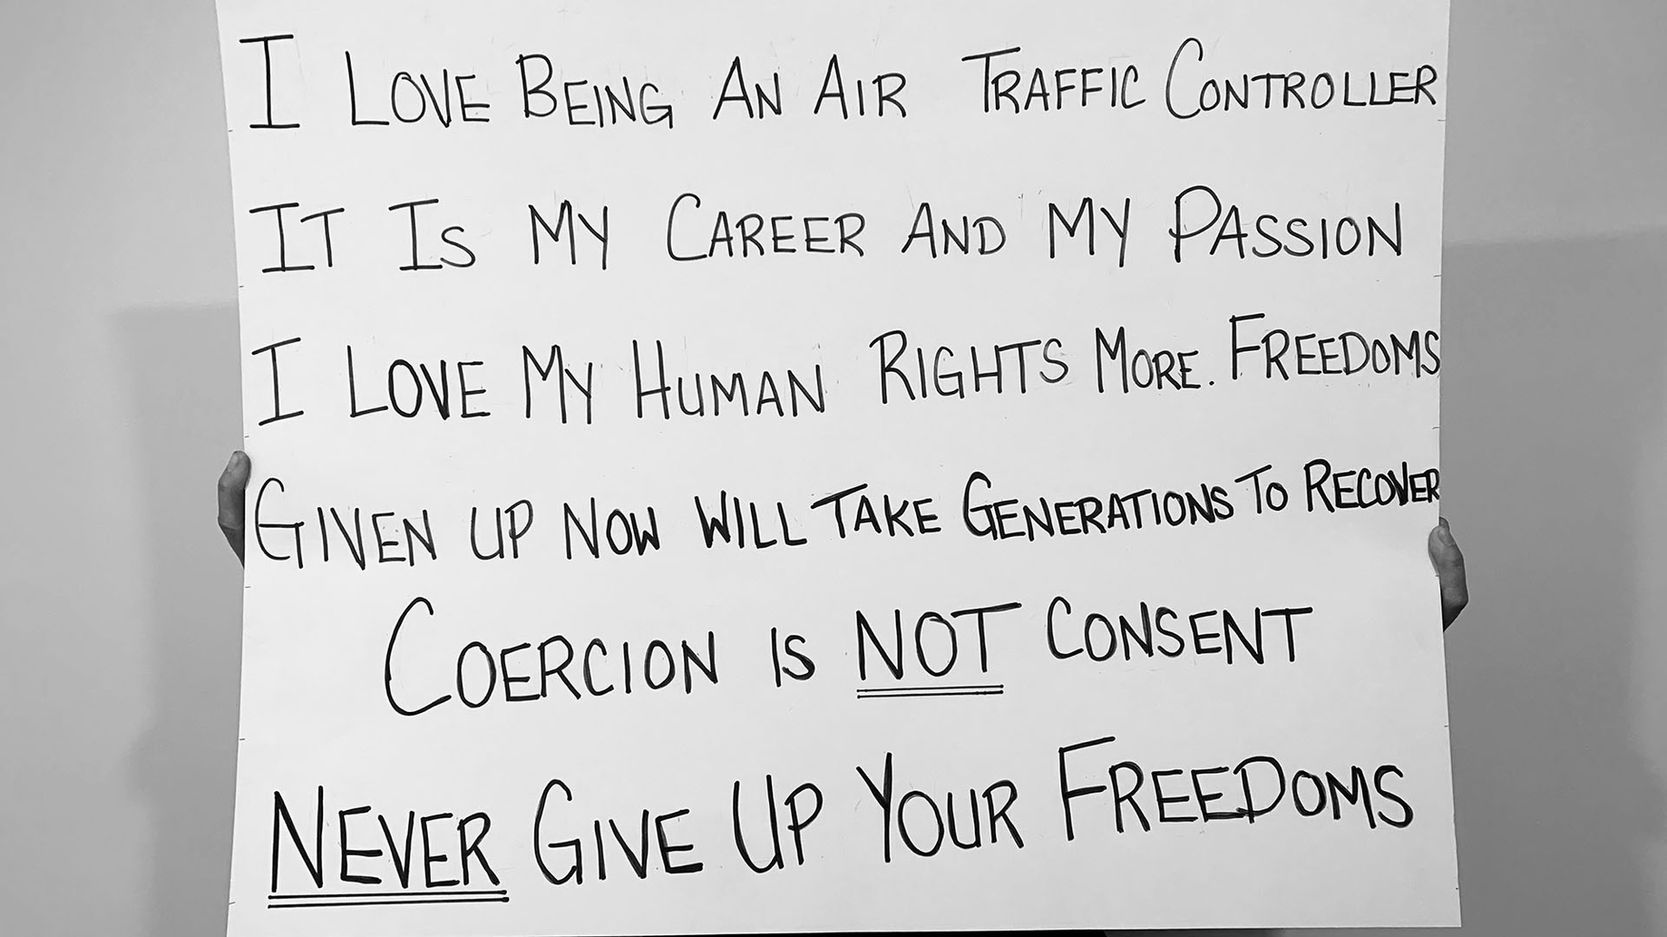 I LOVE BEING AN AIR TRAFFIC CONTROLLER
IT IS MY CAREER AND MY PASSION
I LOVE MY HUMAN RIGHTS MORE. FREEDOMS
GIVEN UP NOW WILL TAKE GENERATIONS TO RECOVER
COERCION IS NOT CONSENT
NEVER GIVE UP YOUR FREEDOMS